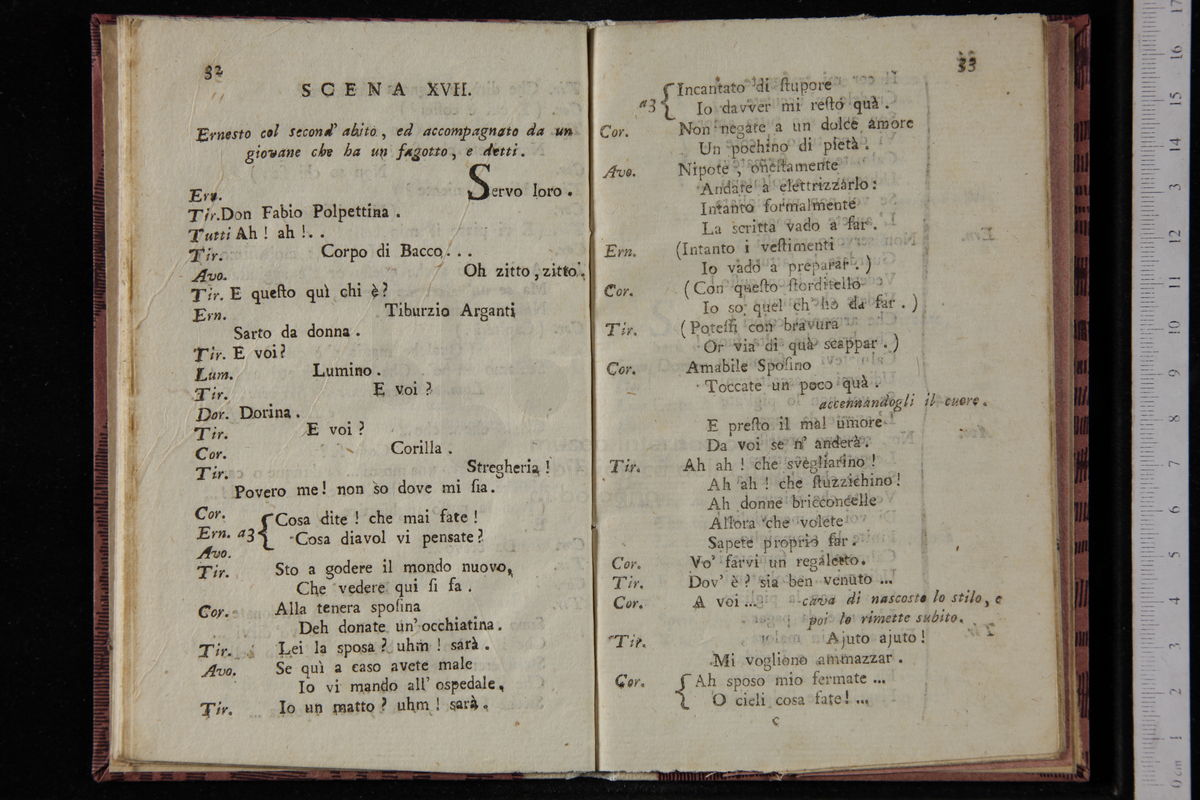 32
SCENA XVII.
Ernesto col second' abito, ed accompagnato da un
giovane che ha un fagotto, e detti.
Ern. Servo loro.
Tir. Don Fabio Polpettina.
Tutti Ah! ah!..
Tir. Corpo di Bacco...
Avo. Oh zitto, zitto.
Tir. E queſto quì chi è?
Ern. Tiburzio Arganti
Sarto da donna.
Tir. E voi?
Lum. Lumino.
Tir. E voi?
Dor. Dorina.
Tir. E voi?
Cor. Corilla.
Tir. Stregheria!
Povero me! non so dove mi ſia.
Cor. Cosa dite! che mai fate!
Ern. a3 Cosa diavol vi pensate?
Avo.
Tir. Sto a godere il mondo nuovo,
Che vedere qui ſi fa.
Cor. Alla tenera spoſina
Deh donate un' occhiatina.
Tir. Lei la sposa? uhm! sarà.
Avo. Se quì a caso avete male
Io vi mando all' ospedale,
Tir. Io un matto? uhm! sarà.
33
a3 Incantato di ſtupore
Io davver mi reſto quà.
Cor. Non negate a un dolce amore
Un pochino di pietà.
Avo. Nipote, oneſtamente
Andate a elettrizzarlo:
Intanto formalmente
La scritta vado a far.
Ern. (Intanto i veſtimenti
Io vado a preparar.)
Cor. (Con queſto ſtorditello
Io so quel ch' ho da far.)
Tir. (Poteſſi con bravura
Or via di quà scappar.)
Cor. Amabile Spoſino
Toccate un poco quà.
accennandogli il cuore.
E preſto il mal umore
Da voi se n' anderà.
Tir. Ah ah! che svegliarino!
Ah ah! che ſtuzzichino!
Ah donne bricconcelle
Allora che volete
Sapete proprio far.
Cor. Vo' farvi un regaletto.
Tir. Dov' è? sia ben venuto...
Cor. A voi... cava di nascosto lo stilo, e
poi lo rimette subito.
Tir. Ajuto ajuto!
Mi vogliono ammazzar.
Cor. Ah sposo mio fermate...
O cieli cosa fate!...
c